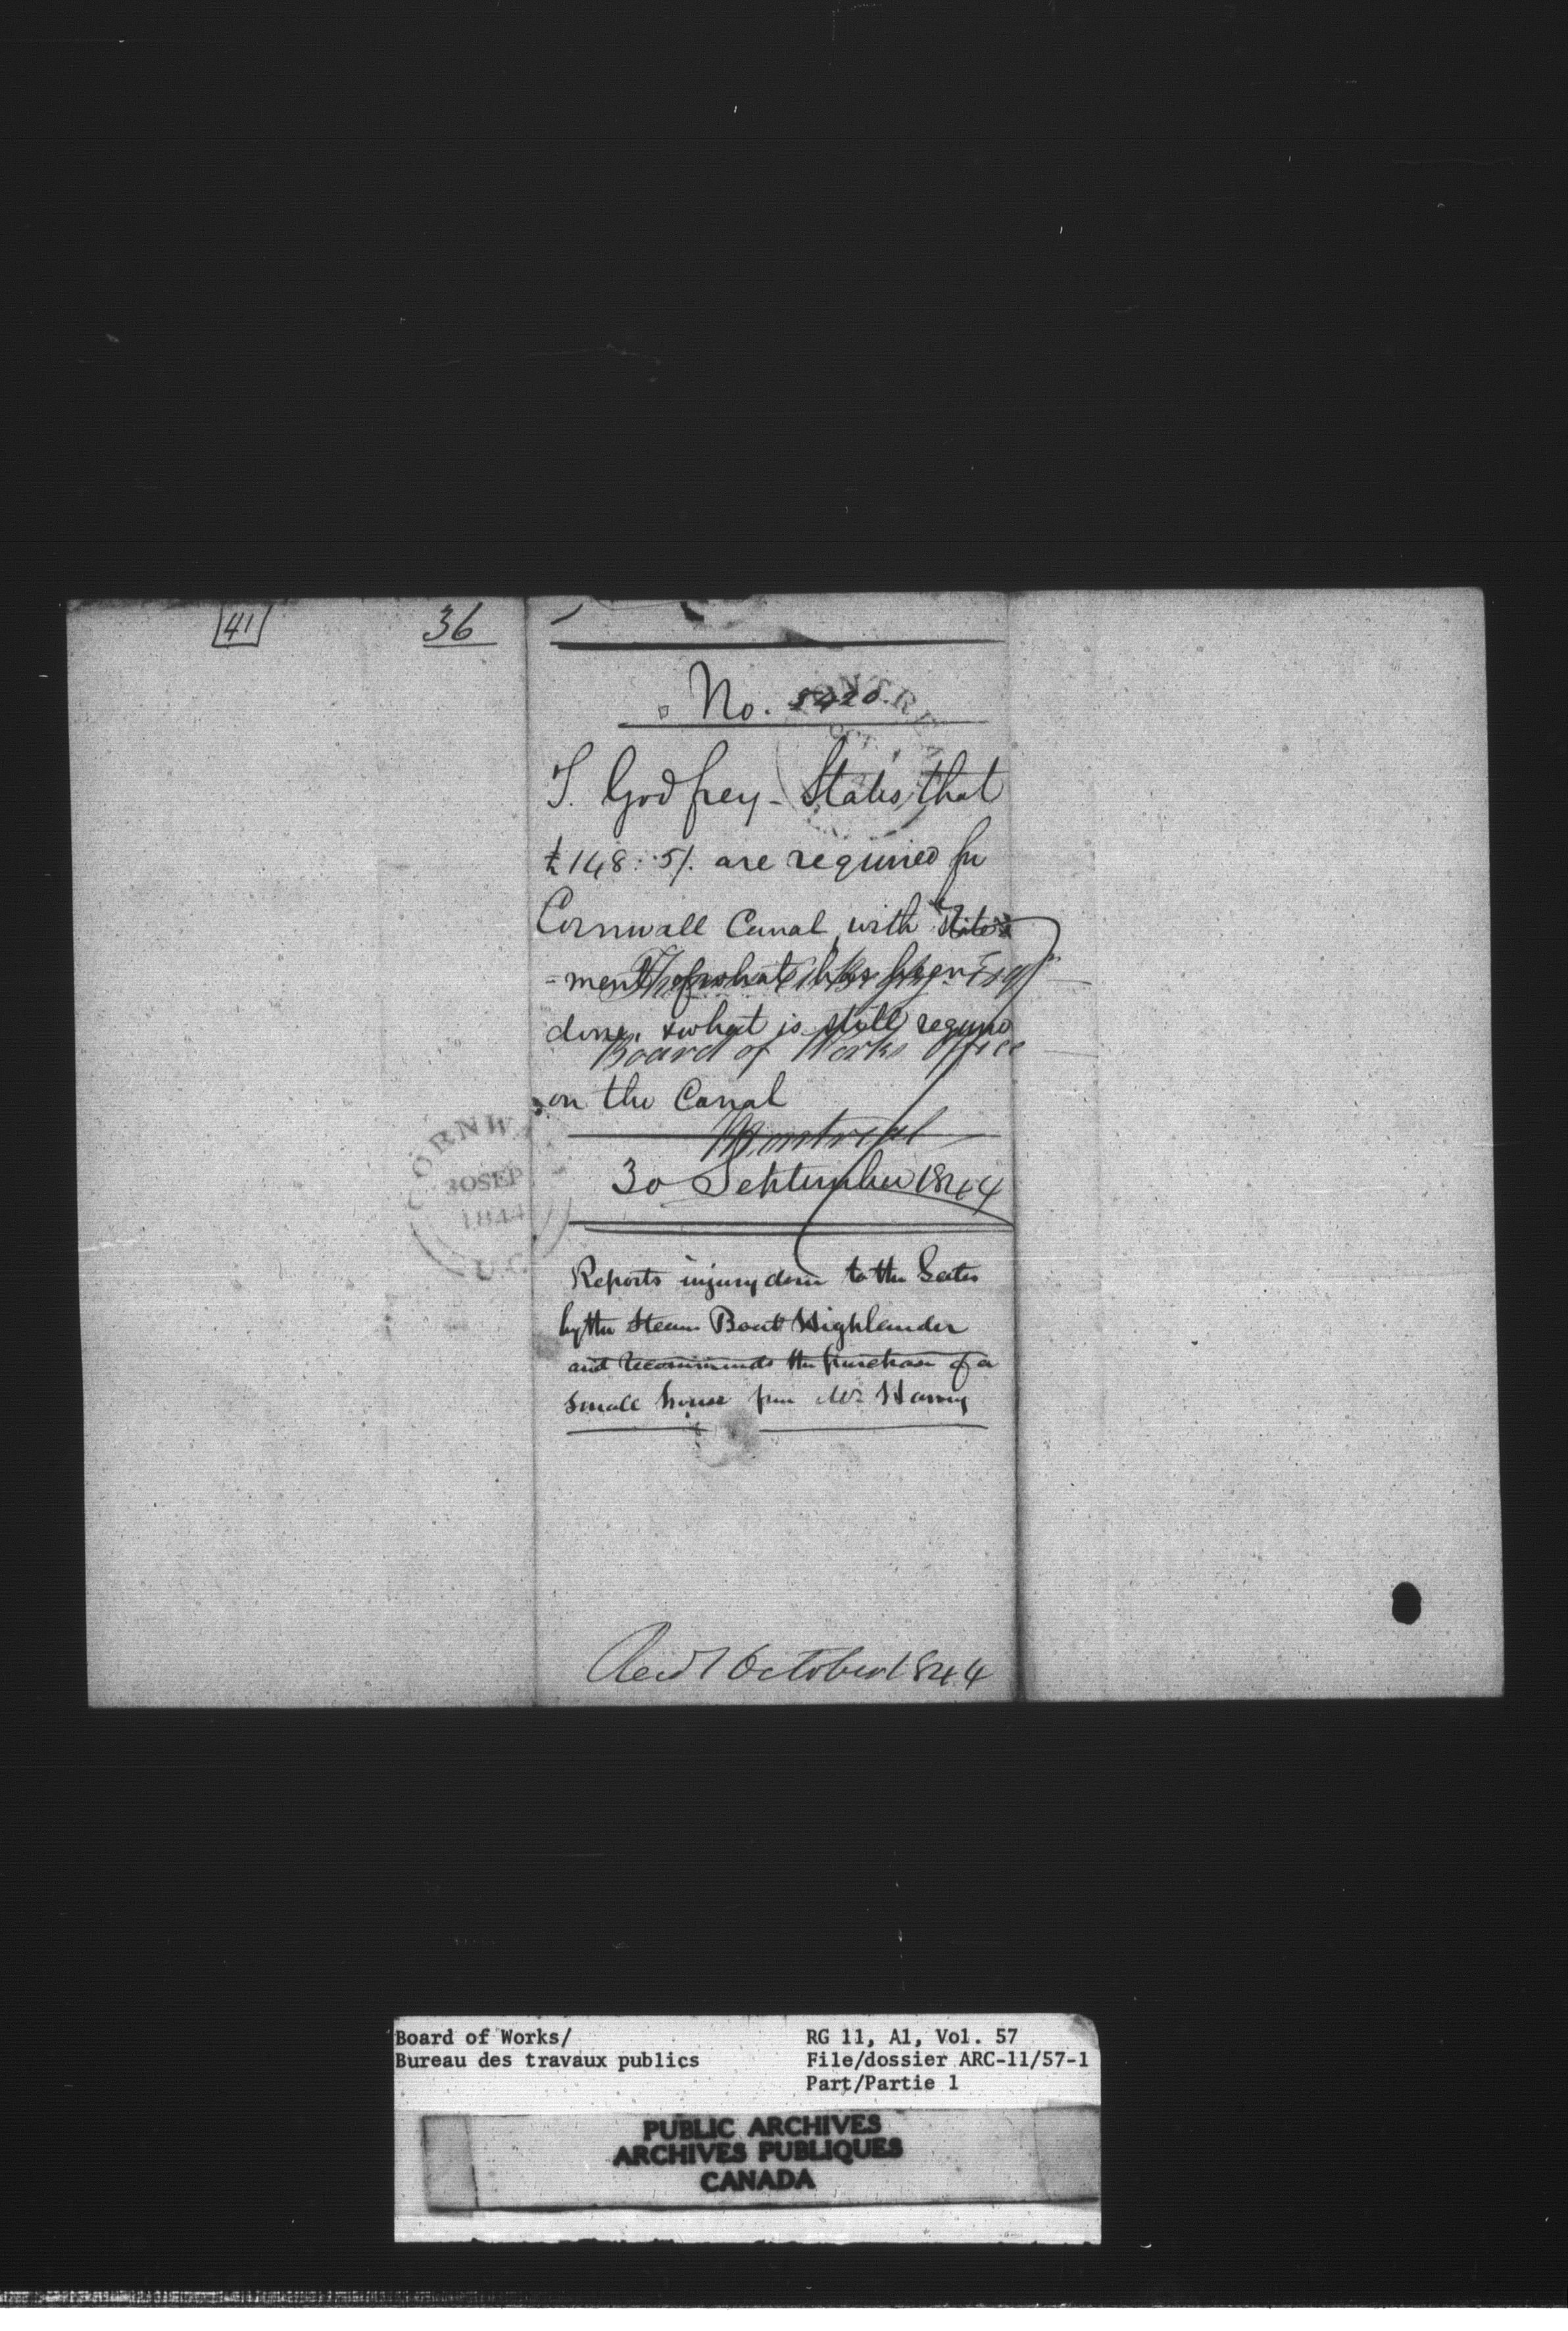 41
36
No. 5420.
T. Godfrey - States that
£148:5/. are required for
Cornwall Canal, with State-
-ment of what has been
done, & what is still required
on the Canal
Thomas Begly Esqr
Board of Works Office
Montreal
30 September 1844
Reports injury done to the Gates
by the Steam Boat Highlander
and recommends the purchase of a
small house from Mr Harvey
Recd 1 October 1844
MONTRE
OCT
CORNW
30SEP
1844
U.C
Board of Works/
Bureau des travaux publics
RG 11, A1, Vol. 57
File/dossier ARC-11/57-1
Part/Partie 1
PUBLIC ARCHIVES
ARCHIVES PUBLIQUES
CANADA